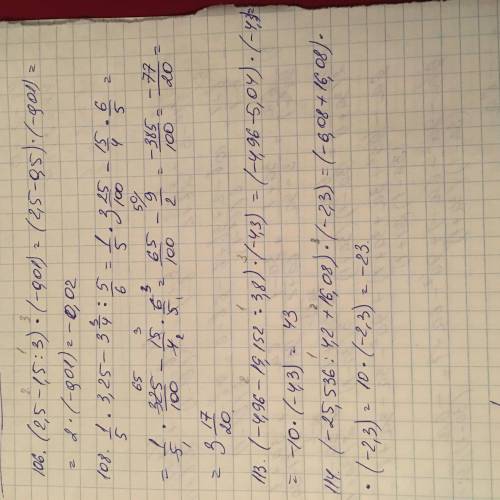 106. (2,5 - 1,5 : 3) · (-0,01) = (2,5 - 0,5) · (-0,01) =
= 2 · (-0,01) = -0,02
108. 1/5 · 3,25 - 3 3/4 : 5/6 = 1/5 · 3 25/100 - 15/4 · 6/5 =
= 1/5 · 325/100 - 15/4 · 6/5 = 65/100 - 9/2 = -385/100 = -77/20 =
= 3 17/20
113. (-4,96 - 19,152 : 3,8) · (-4,3) = (-4,96 - 5,04) · (-4,3) =
= -10 · (-4,3) = 43
114. (-25,536 : 4,2 + 16,08) · (-2,3) = (-6,08 + 16,08) ·
· (-2,3) = 10 · (-2,3) = -23.